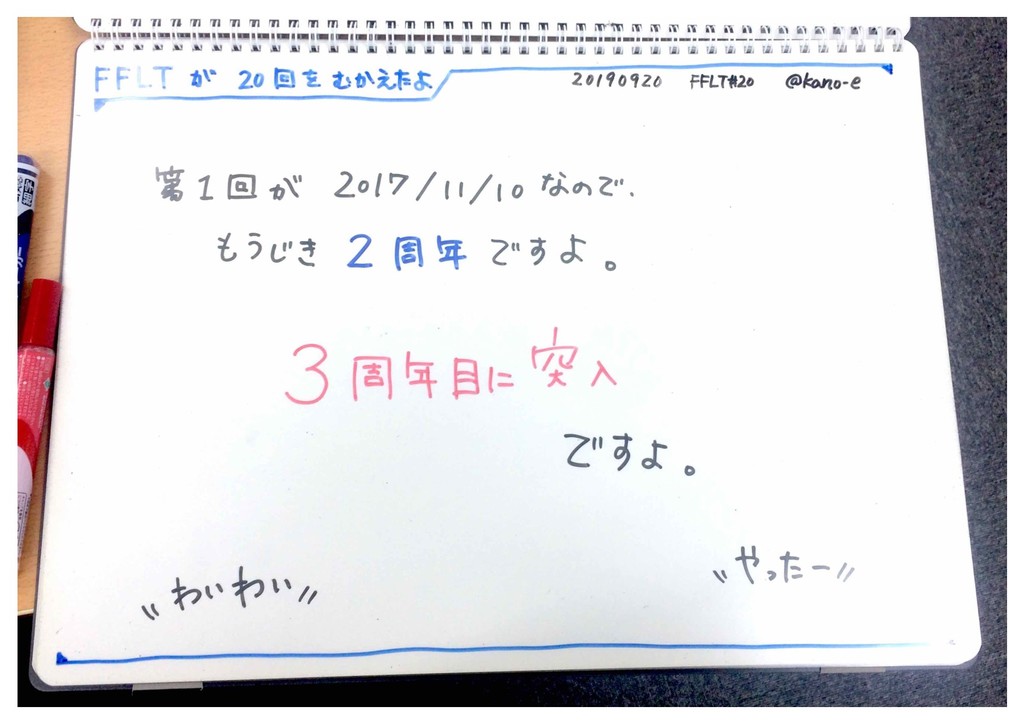 FFLTが 20回をむかえたよ 20190920 FFLT#20 @kano-e
第1回が 2017/11/10 なので、
もうじき 2周年 ですよ。
3周年目に突入
ですよ。
\\わいわい//
\\やったー//